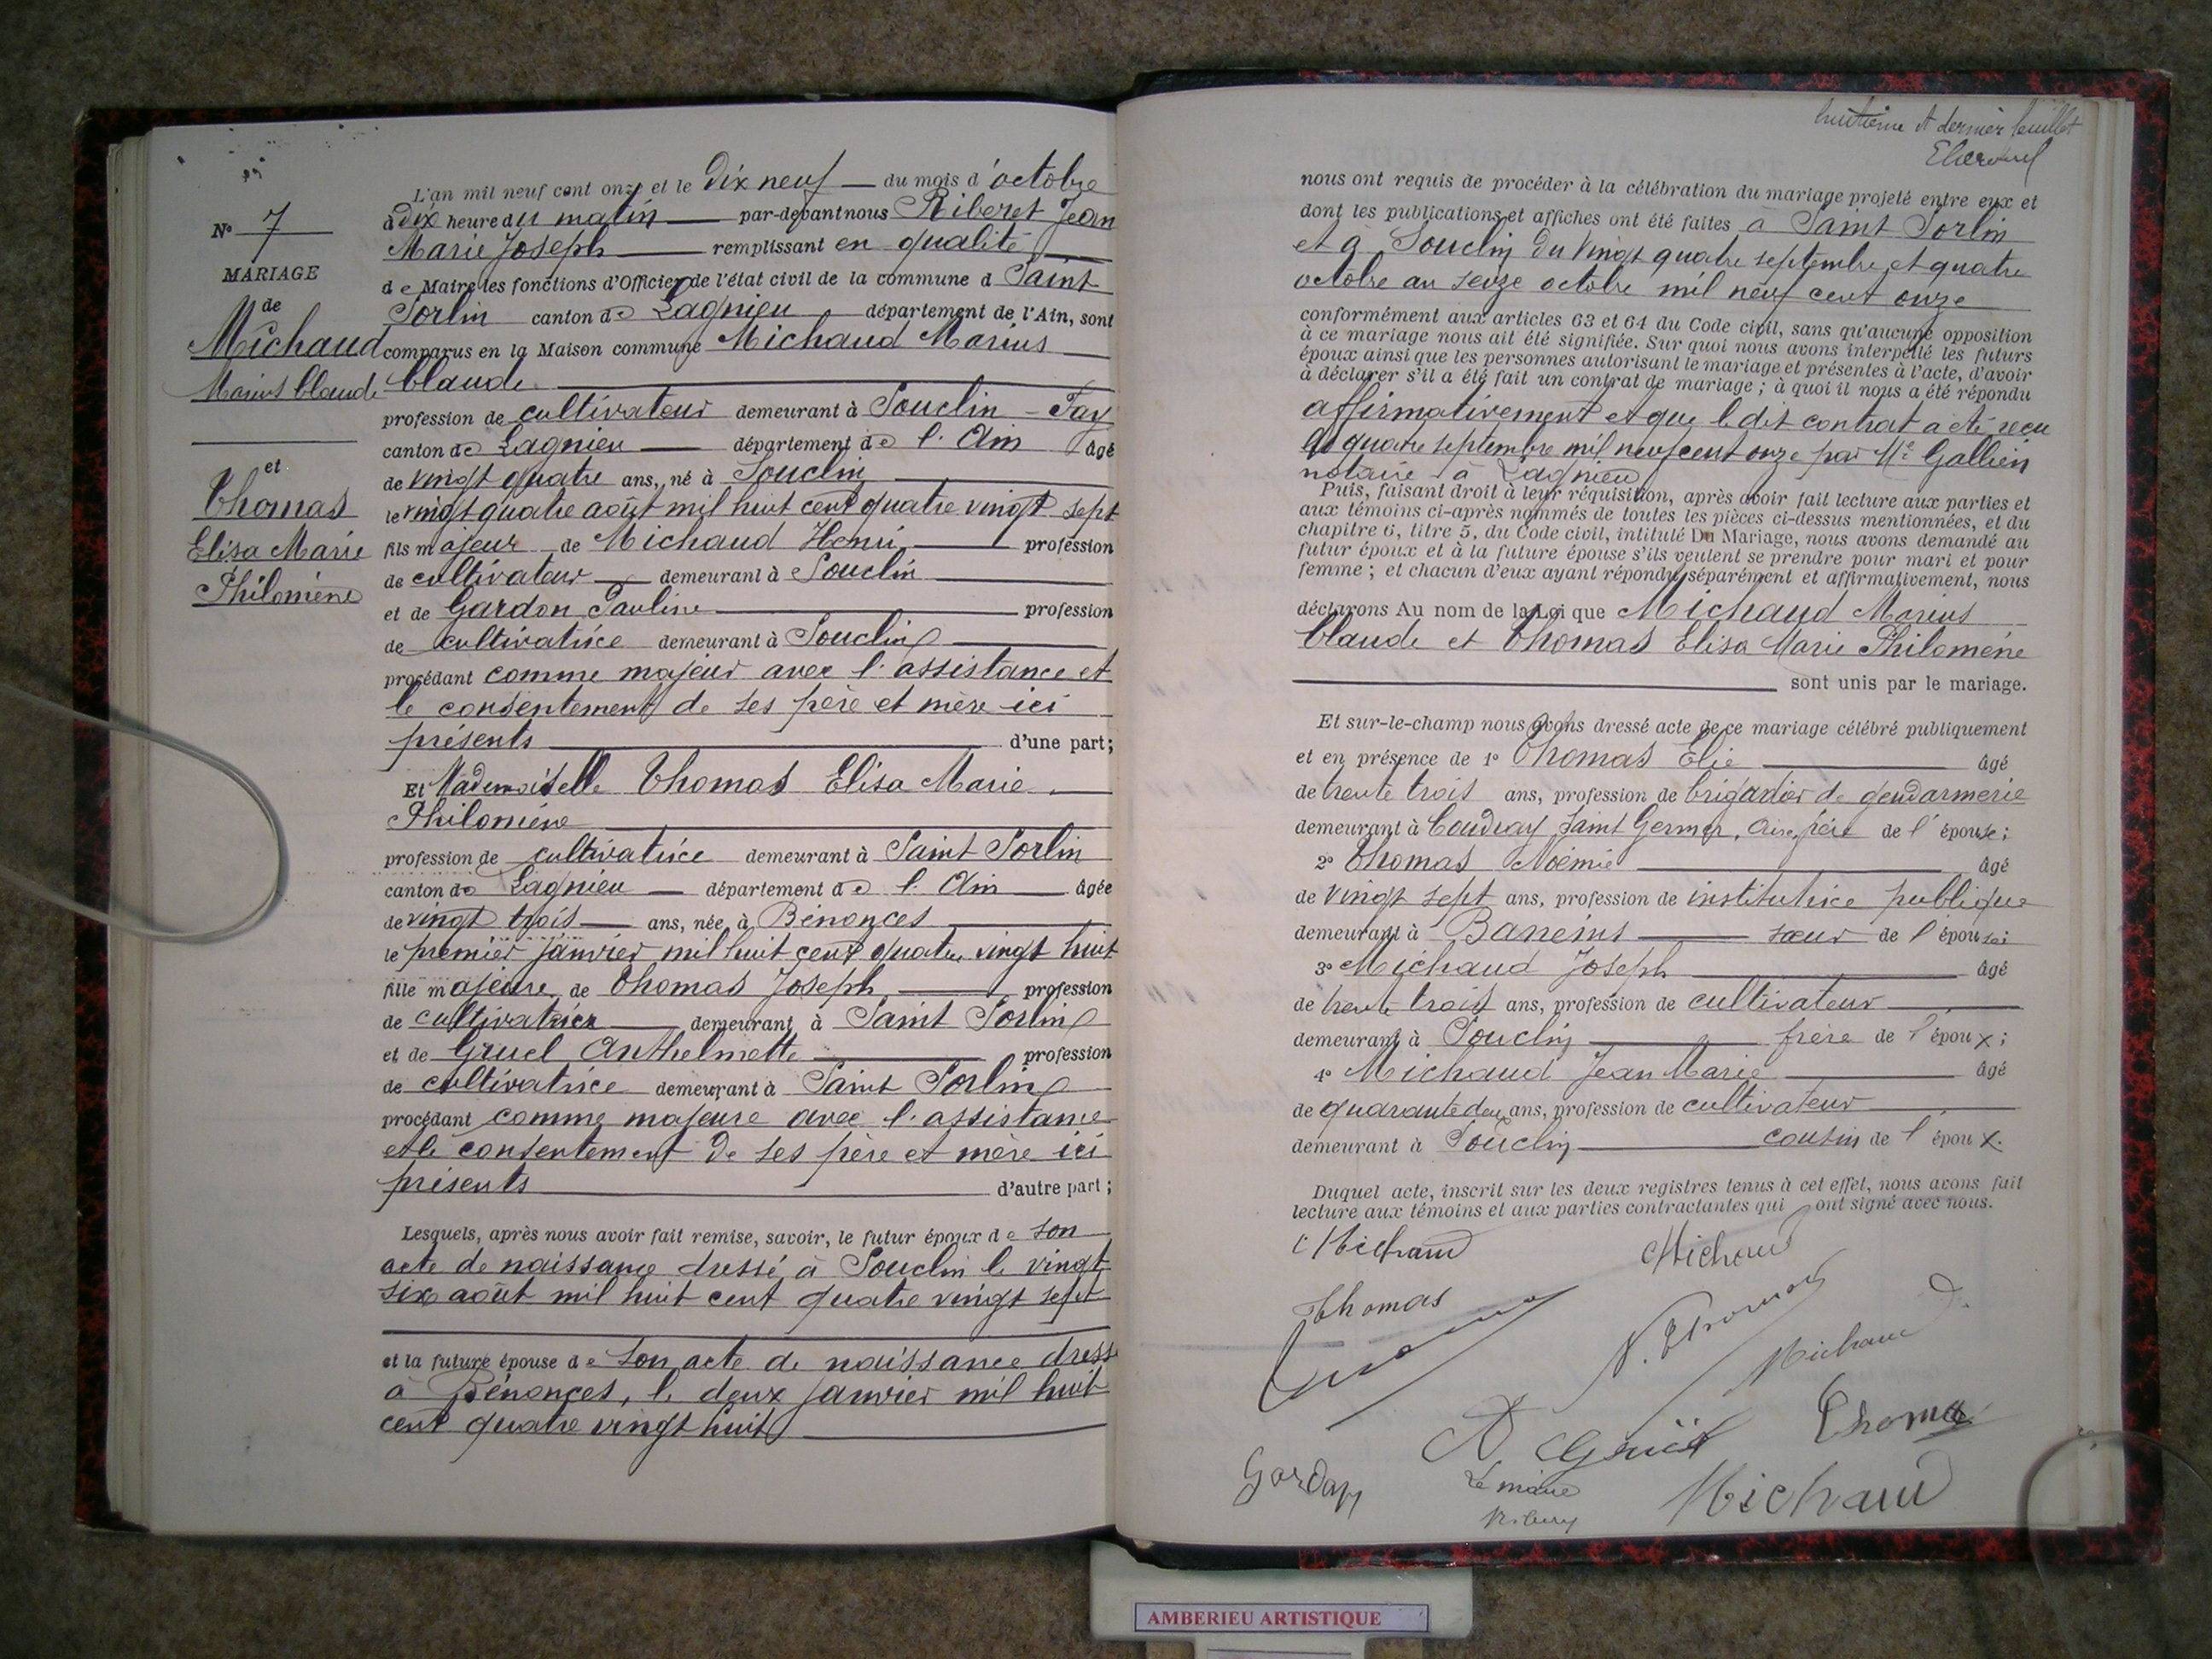 N° 7
MARIAGE
de
Michaud
Marius Claude
et
Thomas
Elisa Marie
Philomène
L'an mil neuf cent onze et le Dix neuf du mois d'octobre
à dix heure du matin par-devant nous Riberet Jean
Marie Joseph remplissant en qualité
de Maire les fonctions d'Officier de l'état civil de la commune d Saint
Sorlin canton de Lagnieu département de l'Ain, sont
comparus en la Maison commune Michaud Marius
Claude
profession de cultivateur demeurant à Souclin - Fay
canton de Lagnieu département de l'Ain âgé
de vingt quatre ans, né à Souclin
le vingt quatre août mil huit cent quatre vingt sept
fils majeur de Michaud Henri profession
de cultivateur demeurant à Souclin
et de Gardon Pauline profession
de cultivatrice demeurant à Souclin
procédant comme majeur avec l'assistance et
le consentement de ses père et mère ici
présents d'une part;
Et Mademoiselle Thomas Elisa Marie
Philomène
profession de cultivatrice demeurant à Saint Sorlin
canton de Lagnieu département de l'Ain âgée
de vingt trois ans, née à Bénonces
le premier janvier mil huit cent quatre vingt huit
fille majeure de Thomas Joseph profession
de demeurant à Saint Sorlin
et de Gruel Anthelmette profession
de cultivatrice demeurant à Saint Sorlin
procédant comme majeure avec l'assistance
et le consentement de ses père et mère ici
présents d'autre part;
Lesquels, après nous avoir fait remise, savoir, le futur époux de son
acte de naissance dressé à Souclin le vingt
six août mil huit cent quatre vingt sept
et la future épouse de son acte de naissance dressé
à Bénonces, le deux janvier mil huit
cent quatre vingt huit
huitième et dernier feuillet
nous ont requis de procéder à la célébration du mariage projeté entre eux et
dont les publications et affiches ont été faites à Saint Sorlin
et à Souclin du vingt quatre septembre et quatre
octobre au seize octobre mil neuf cent onze
conformément aux articles 63 et 64 du Code civil, sans qu'aucune opposition
à ce mariage nous ait été signifiée. Sur quoi nous avons interpellé les futurs
époux ainsi que les personnes autorisant le mariage et présentes à l'acte, d'avoir
à déclarer s'il a été fait un contrat de mariage ; à quoi il nous a été répondu
affirmativement et que le dit contrat a été reçu
le quatre septembre mil neuf cent onze par Me Gallien
notaire à Lagnieu
Puis, faisant droit à leur réquisition, après avoir fait lecture aux parties et
aux témoins ci-après nommés de toutes les pièces ci-dessus mentionnées, et du
chapitre 6, titre 5, du Code civil, intitulé Du Mariage, nous avons demandé au
futur époux et à la future épouse s'ils veulent se prendre pour mari et pour
femme ; et chacun d'eux ayant répondu séparément et affirmativement, nous
déclarons Au nom de la Loi que Michaud Marius
Claude et Thomas Elisa Marie Philomène
sont unis par le mariage.
Et sur-le-champ nous avons dressé acte de ce mariage célébré publiquement
et en présence de 1° Thomas Elie âgé
de trente trois ans, profession de brigadier de gendarmerie
demeurant à Coudray Saint Germer, Oise, frère de l'épouse;
2° Thomas Noémie âgé
de vingt sept ans, profession de institutrice publique
demeurant à Baneins soeur de l'épouse;
3° Michaud Joseph âgé
de trente trois ans, profession de cultivateur
demeurant à Souclin frère de l'époux;
4° Michaud Jean Marie âgé
de quarante deux ans, profession de cultivateur
demeurant à Souclin cousin de l'époux.
Duquel acte, inscrit sur les deux registres tenus à cet effet, nous avons fait
lecture aux témoins et aux parties contractantes qui ont signé avec nous.
Michaud Michaud
Thomas
N. Thomas Michaud
Thomas
Gardon Le maire Michaud
AMBERIEU ARTISTIQUE